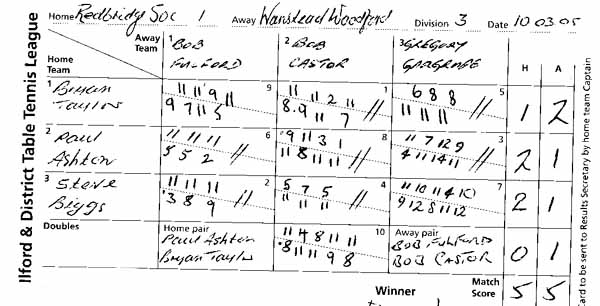 Ilford & District Table Tennis League
Home Redbridge Soc 1 Away Wanstead Woodford Division 3 Date 10 03 05
Away Team
Home Team
1 BOB FULFORD
2 BOB CASTOR
3 GREGORY
H A
1 Bryan Taylor
9
11 11 9 11
9 7 11 5
1
11 11 2 11
8 9 11 7 //
5
6 8 8
11 11 11 //
1 2
2 Paul Ashton
6
11 11 11
5 5 2 //
8
9 11 3 1
11 8 11 11 //
3
11 7 12 9
4 11 14 11 //
2 1
3 Steve Biggs
2
11 11 11
3 8 9 //
4
5 7 5
11 11 11 //
7
11 10 11 4 10
9 12 8 11 12
2 1
Doubles
Home pair
Paul Ashton
Bryan Taylor
10
11 4 8 11 11
8 11 11 9 8
Away pair
BOB FULFORD
BOB CASTOR
0 1
Winner
Match Score 5 5
Card to be sent to Results Secretary by Home team Captain